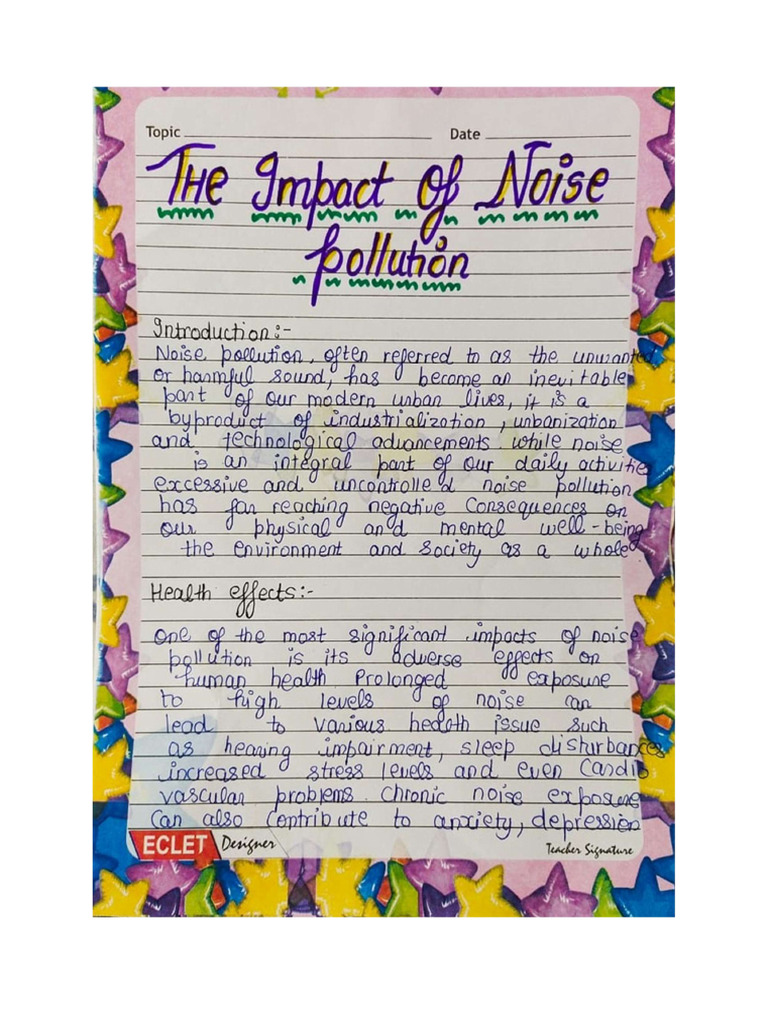 Topic Date
The Impact Of Noise
Pollution
Introduction:-
Noise pollution, often referred to as the unwanted
or harmful sound, has become an inevitable
part of our modern urban lives, it is a
byproduct of industrialization, urbanization
and technological advancements while noise
is an integral part of our daily activitie
excessive and uncontrolled noise pollution
has far reaching negative Consequences on
our physical and mental well-being
the environment and society as a whole
Health effects:-
One of the most significant impacts of noise
pollution is its adverse effects on
human health Prolonged exposure
to high levels of noise can
lead to various health issue such
as hearing impairment, sleep disturbances
increased stress levels and even Cardio
vascular problems. Chronic noise exposure
Can also Contribute to anxiety, depression
ECLET Designer Teacher Signature